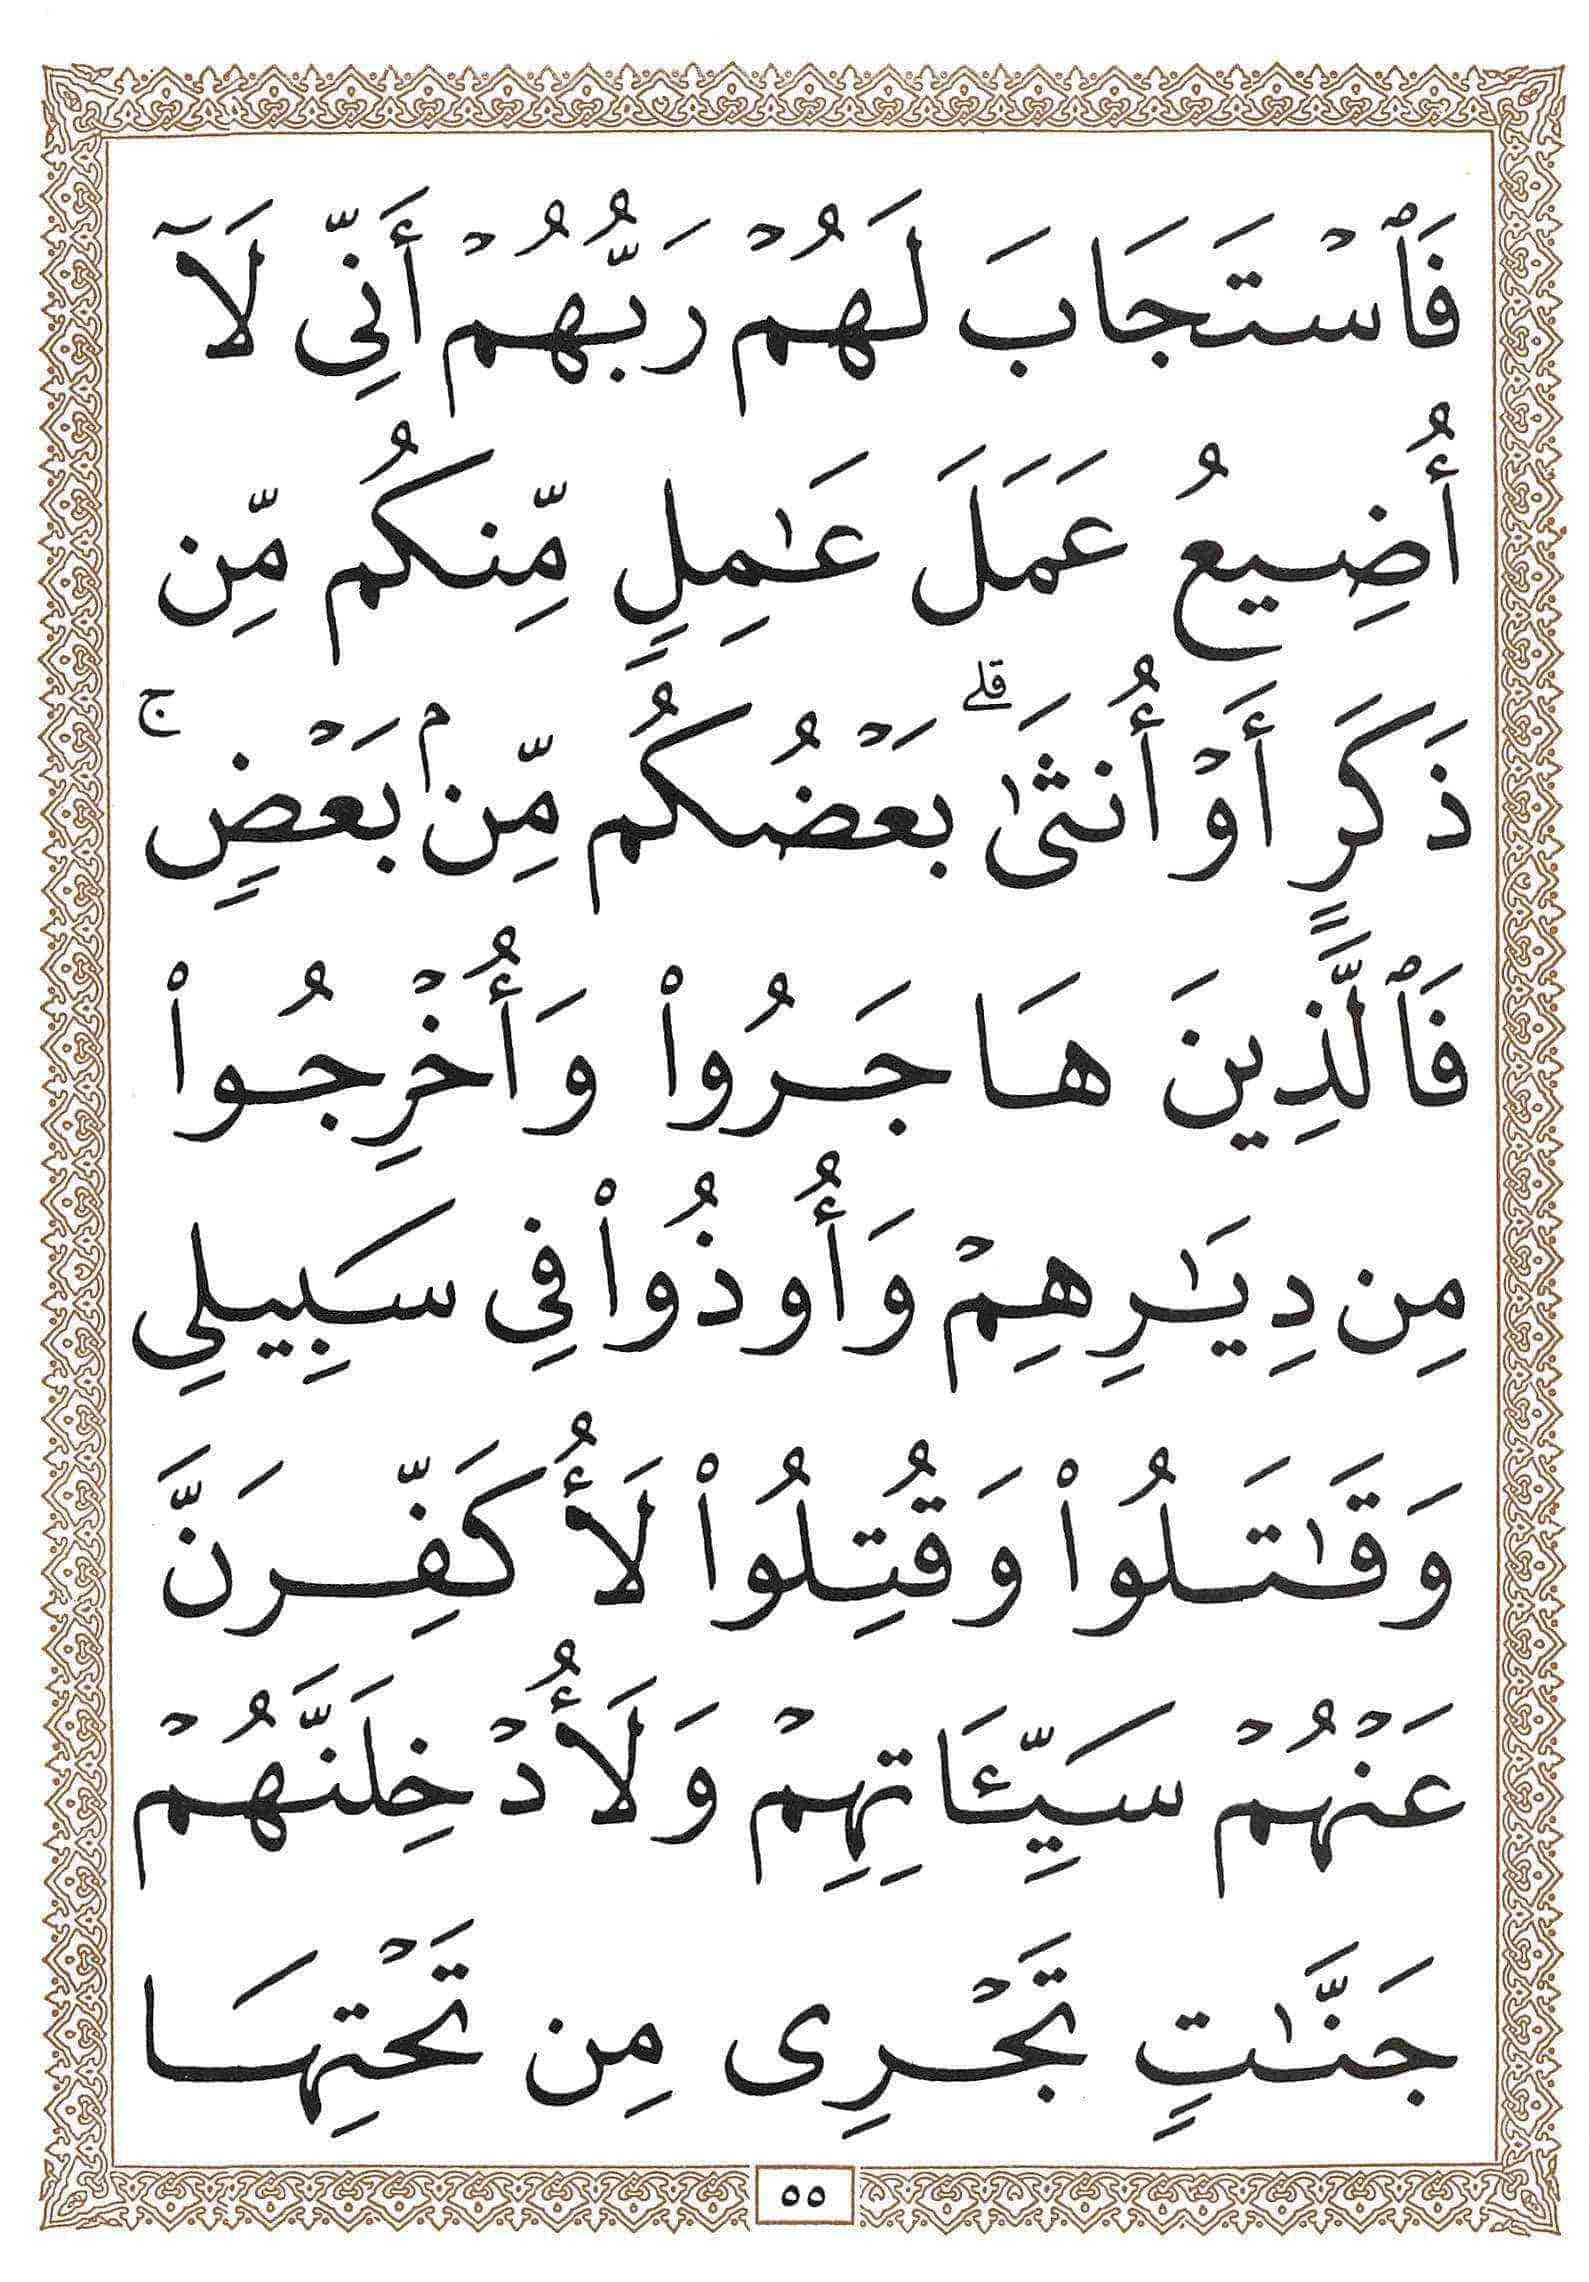 فَٱسْتَجَابَ لَهُمْ رَبُّهُمْ أَنِّى لَآ
أُضِيعُ عَمَلَ عَٰمِلٍ مِّنكُم مِّن
ذَكَرٍ أَوْ أُنثَىٰ ۖ بَعْضُكُم مِّنۢ بَعْضٍ ۚ
فَٱلَّذِينَ هَاجَرُوا۟ وَأُخْرِجُوا۟
مِن دِيَٰرِهِمْ وَأُوذُوا۟ فِى سَبِيلِى
وَقَٰتَلُوا۟ وَقُتِلُوا۟ لَأُكَفِّرَنَّ
عَنْهُمْ سَيِّـَٔاتِهِمْ وَلَأُدْخِلَنَّهُمْ
جَنَّٰتٍ تَجْرِى مِن تَحْتِهَا
٥٥